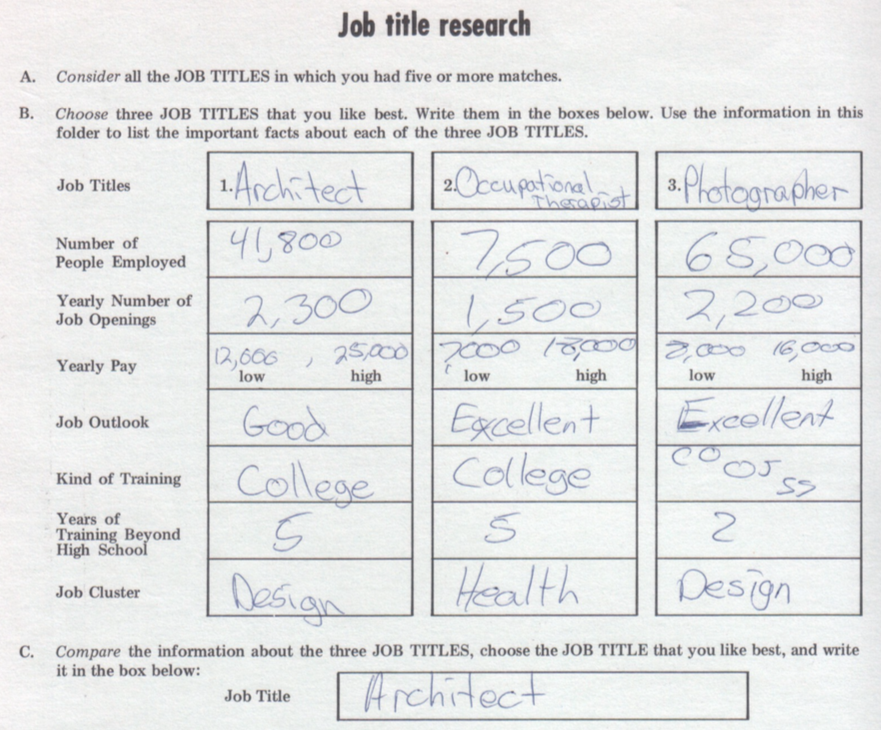 Job title research
A. Consider all the JOB TITLES in which you had five or more matches.
B. Choose three JOB TITLES that you like best. Write them in the boxes below. Use the information in this
folder to list the important facts about each of the three JOB TITLES.
Job Titles 1. Architect 2. Occupational Therapist 3. Photographer
Number of
People Employed 41,800 7,500 65,000
Yearly Number of
Job Openings 2,300 1,500 2,200
Yearly Pay 12,000 , 25,000 7000 18,000 8,000 16,000
low high low high low high
Job Outlook Good Excellent Excellent
Kind of Training College College
Years of
Training Beyond
High School 5 5 2
Job Cluster Design Health Design
C. Compare the information about the three JOB TITLES, choose the JOB TITLE that you like best, and write
it in the box below:
Job Title Architect